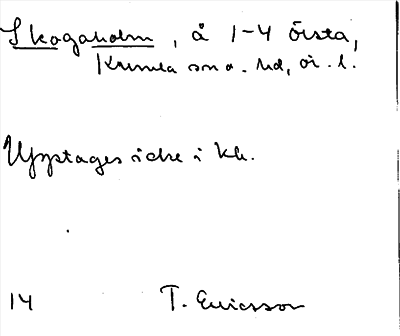 Skogaholm, å 1-4 Örsta,
Kumla sn o. hd, ör. l.
Upptages icke i kb.
14 T. Ericsson